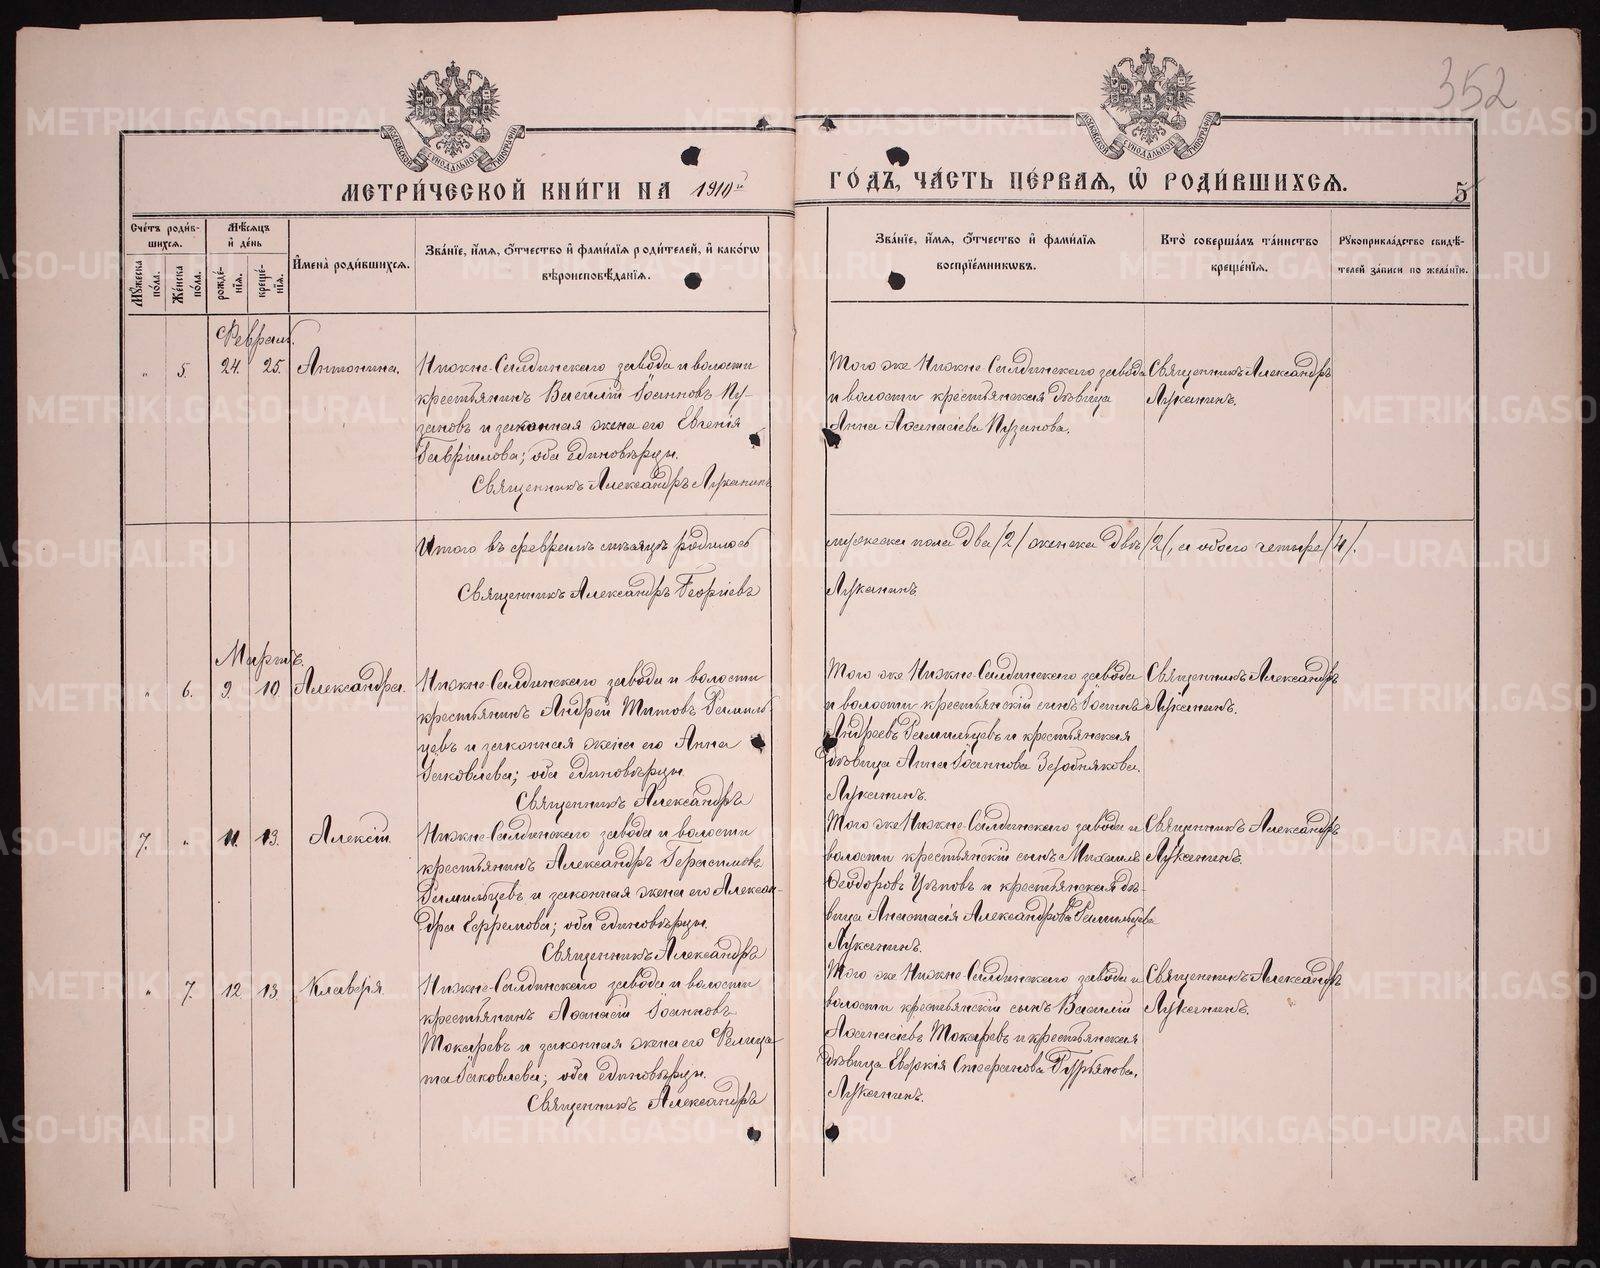 352
МЕТРИ́ЧЕСКОЙ КНИ́ГИ НА 1910й ГО́ДЪ, ЧА́СТЬ ПЕ́РВАЯ, Ѡ҆ РОДИ́ВШИХСЯ.
5
Сче́тъ роди́в-
шихся.
Мꙋ́жеска по́ла.
Же́нска по́ла.
Мѣ́сяцъ
и҆ де́нь
рожде́-
нїя.
креще́-
нїя.
И҆мена̀ роди́вшихся.
Зва́нїе, и҆́мя, ѻ҆́тчество и҆ фами́лїя роди́телей, и҆ како́гѡ
вѣроисповѣ́данїя.
Зва́нїе, и҆́мя, ѻ҆́тчество и҆ фами́лїя
воспрїе́мниковъ.
Кто̀ соверша́лъ та́инство
креще́нїя.
Рꙋкоприкла́дство свидѣ́-
телей за́писи по жела́нїю.
Февраль.
" 5. 24. 25. Антонина.
Нижне-Салдинскаго завода и волости
крестьянинъ Василій Іоанновъ Пу-
зановъ и законная жена его Евгенія
Гавріилова; оба единовѣрцы.
Священникъ Александръ Луканинъ
Того же Нижне-Салдинскаго завода
и волости крестьянская дѣвица
Анна Аѳанасіева Пузанова.
Священникъ Александръ
Луканинъ.
Итого въ февралѣ мѣсяцѣ родилось мужеска пола два /2/ женска двѣ /2/, а обоего четыре /4/.
Священникъ Александръ Георгіевъ Луканинъ
Мартъ.
" 6. 9. 10. Александра.
Нижне-Салдинскаго завода и волости
крестьянинъ Андрей Титовъ Гамиль
цевъ и законная жена его Анна
Іаковлева; оба единовѣрцы.
Священникъ Александръ
Того же Нижне-Салдинскаго завода
и волости крестьянскій сынъ Іоаннъ
Андреевъ Гамильцевъ и крестьянская
дѣвица Анна Іоаннова
Луканинъ.
Священникъ Александръ
Луканинъ.
7. " 11. 13. Алексій.
Нижне-Салдинскаго завода и волости
крестьянинъ Александръ Герасимовъ
Гамильцевъ и законная жена его Алексан-
дра Ефремова; оба единовѣрцы.
Священникъ Александръ
Того же Нижне-Салдинскаго завода и
волости крестьянскій сынъ Михаилъ
Ѳеодоровъ Цѣповъ и крестьянская дѣ-
вица Анастасія Александрова Гамильцева
Луканинъ.
Священникъ Александръ
Луканинъ.
" 7. 12 13 Клавдія
Нижне-Салдинскаго завода и волости
крестьянинъ Аѳанасій Іоанновъ
Токаревъ и законная жена его Фелица-
та Іаковлева; оба единовѣрцы.
Священникъ Александръ
Того же Нижне-Салдинскаго завода и
волости крестьянскій сынъ Василій
Аѳанасіевъ Токаревъ и крестьянская
дѣвица Евдокія Стефанова Гурьянова.
Луканинъ.
Священникъ Александръ
Луканинъ.
METRIKI.GASO-URAL.RU